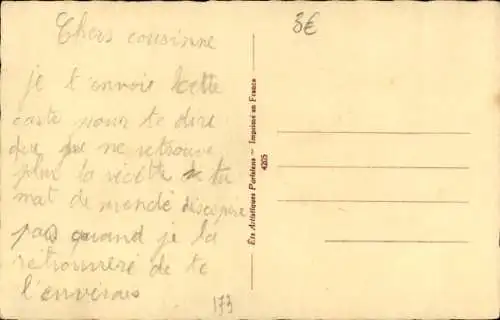 Chers cousinne
je t'envoie cette
carte pour te dire
que je ne retrouve
plus la recette tu
mat de mandé
pas quand je la
retrouveré de te
l'enverais
3€
173
Ets Artistiques Parisiens — Imprimé en France
4205